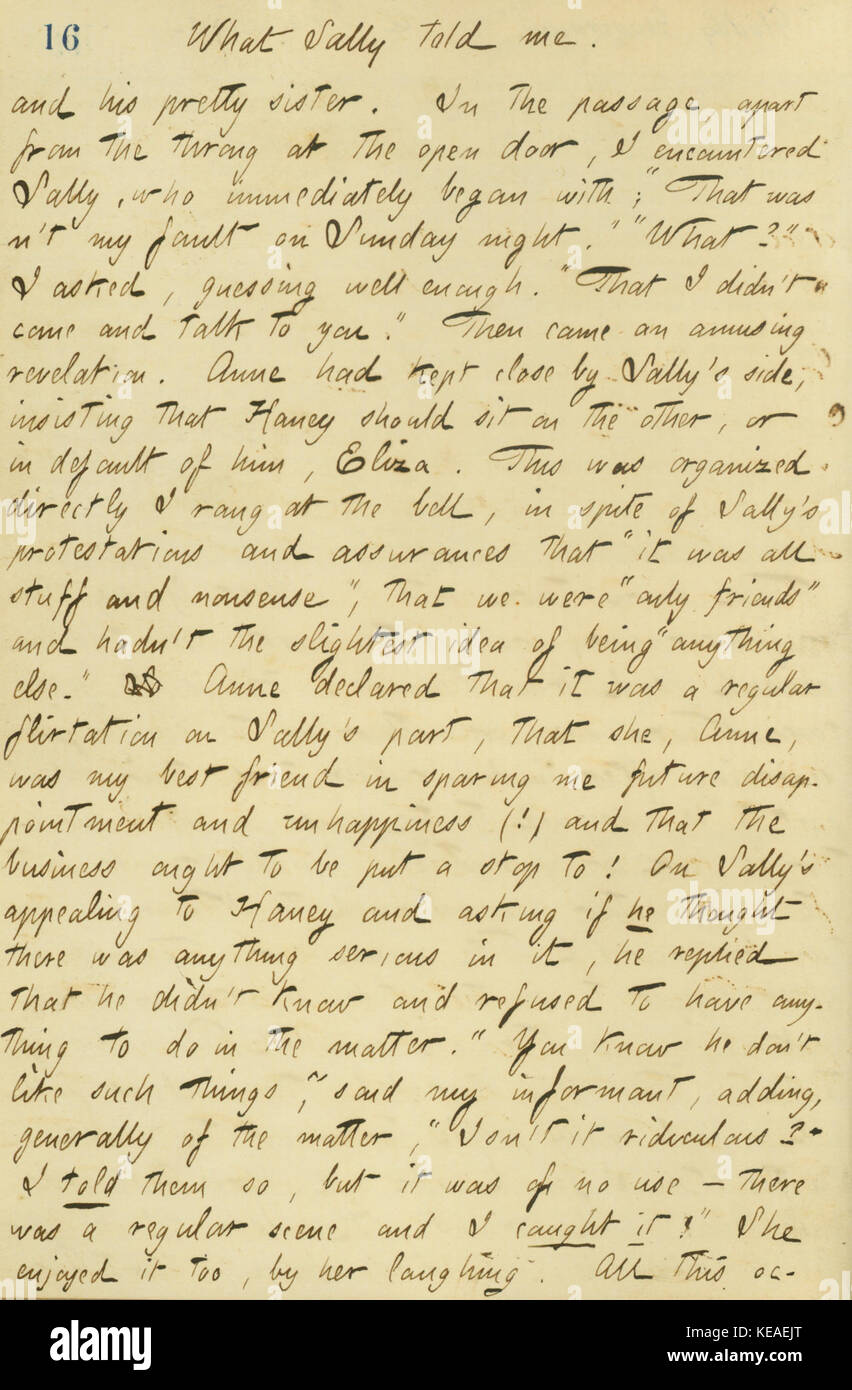 16 What Sally told me.
and his pretty sister. In the passage, apart
from the throng at the open door, I encountered
Sally, who immediately began with; "That was
n't my fault on Sunday night." "What?"
I asked, guessing well enough. "That I didn't
come and talk to you." Then came an amusing
revelation. Anne had kept close by Sally's side,
insisting that Haney should sit on the other, or
in default of him, Eliza. This was organized
directly I rang at the bell, in spite of Sally's
protestations and assurances that "it was all
stuff and nonsense", that we were "only friends"
and hadn't the slightest idea of being "anything
else." Anne declared that it was a regular
flirtation on Sally's part, that she, Anne,
was my best friend in sparing me future disap-
pointment and unhappiness (!) and that the
business ought to be put a stop to! On Sally's
appealing to Haney and asking if he thought
there was anything serious in it, he replied
that he didn't know and refused to have any-
thing to do in the matter. "You know he don't
like such things," said my informant, adding,
generally of the matter, "Isn't it ridiculous?
I told them so, but it was of no use — there
was a regular scene and I caught it!" She
enjoyed it too, by her laughing. All this oc-
alamy
Image ID: KEAEJT
www.alamy.com